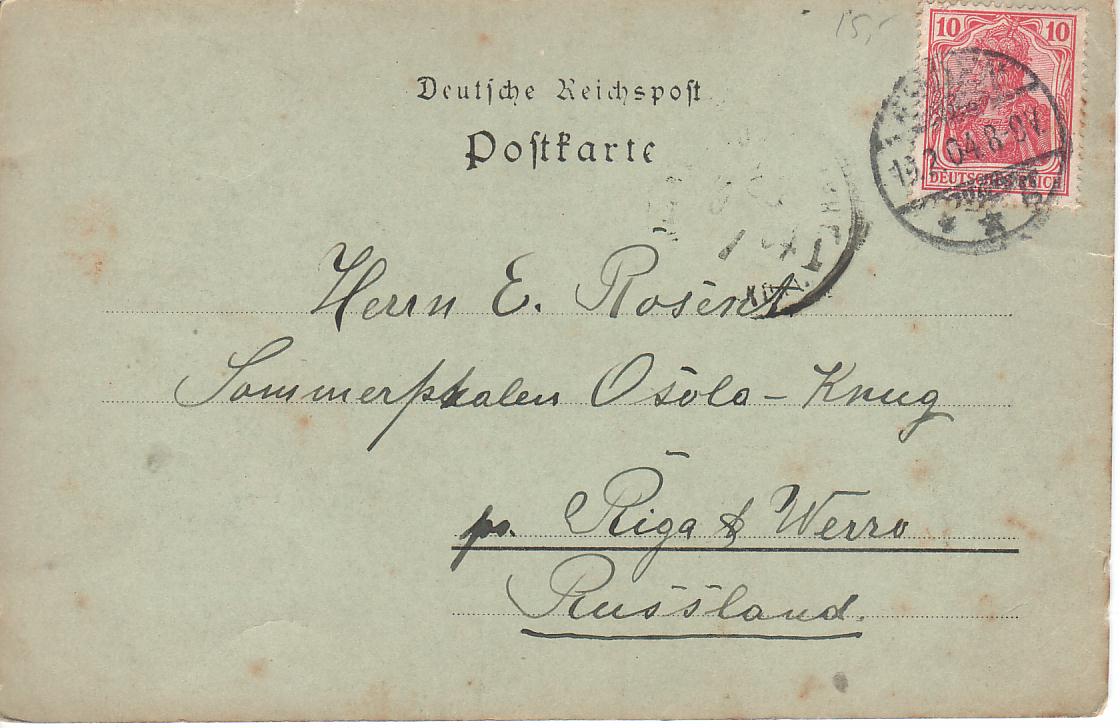 15,-
10 10
DEUTSCHES REICH
Deutsche Reichspost
Postkarte
8-9V.
Herrn E. Rosent
Sommerphalen Osola-Krug
pr. Riga & Werro
Russland.